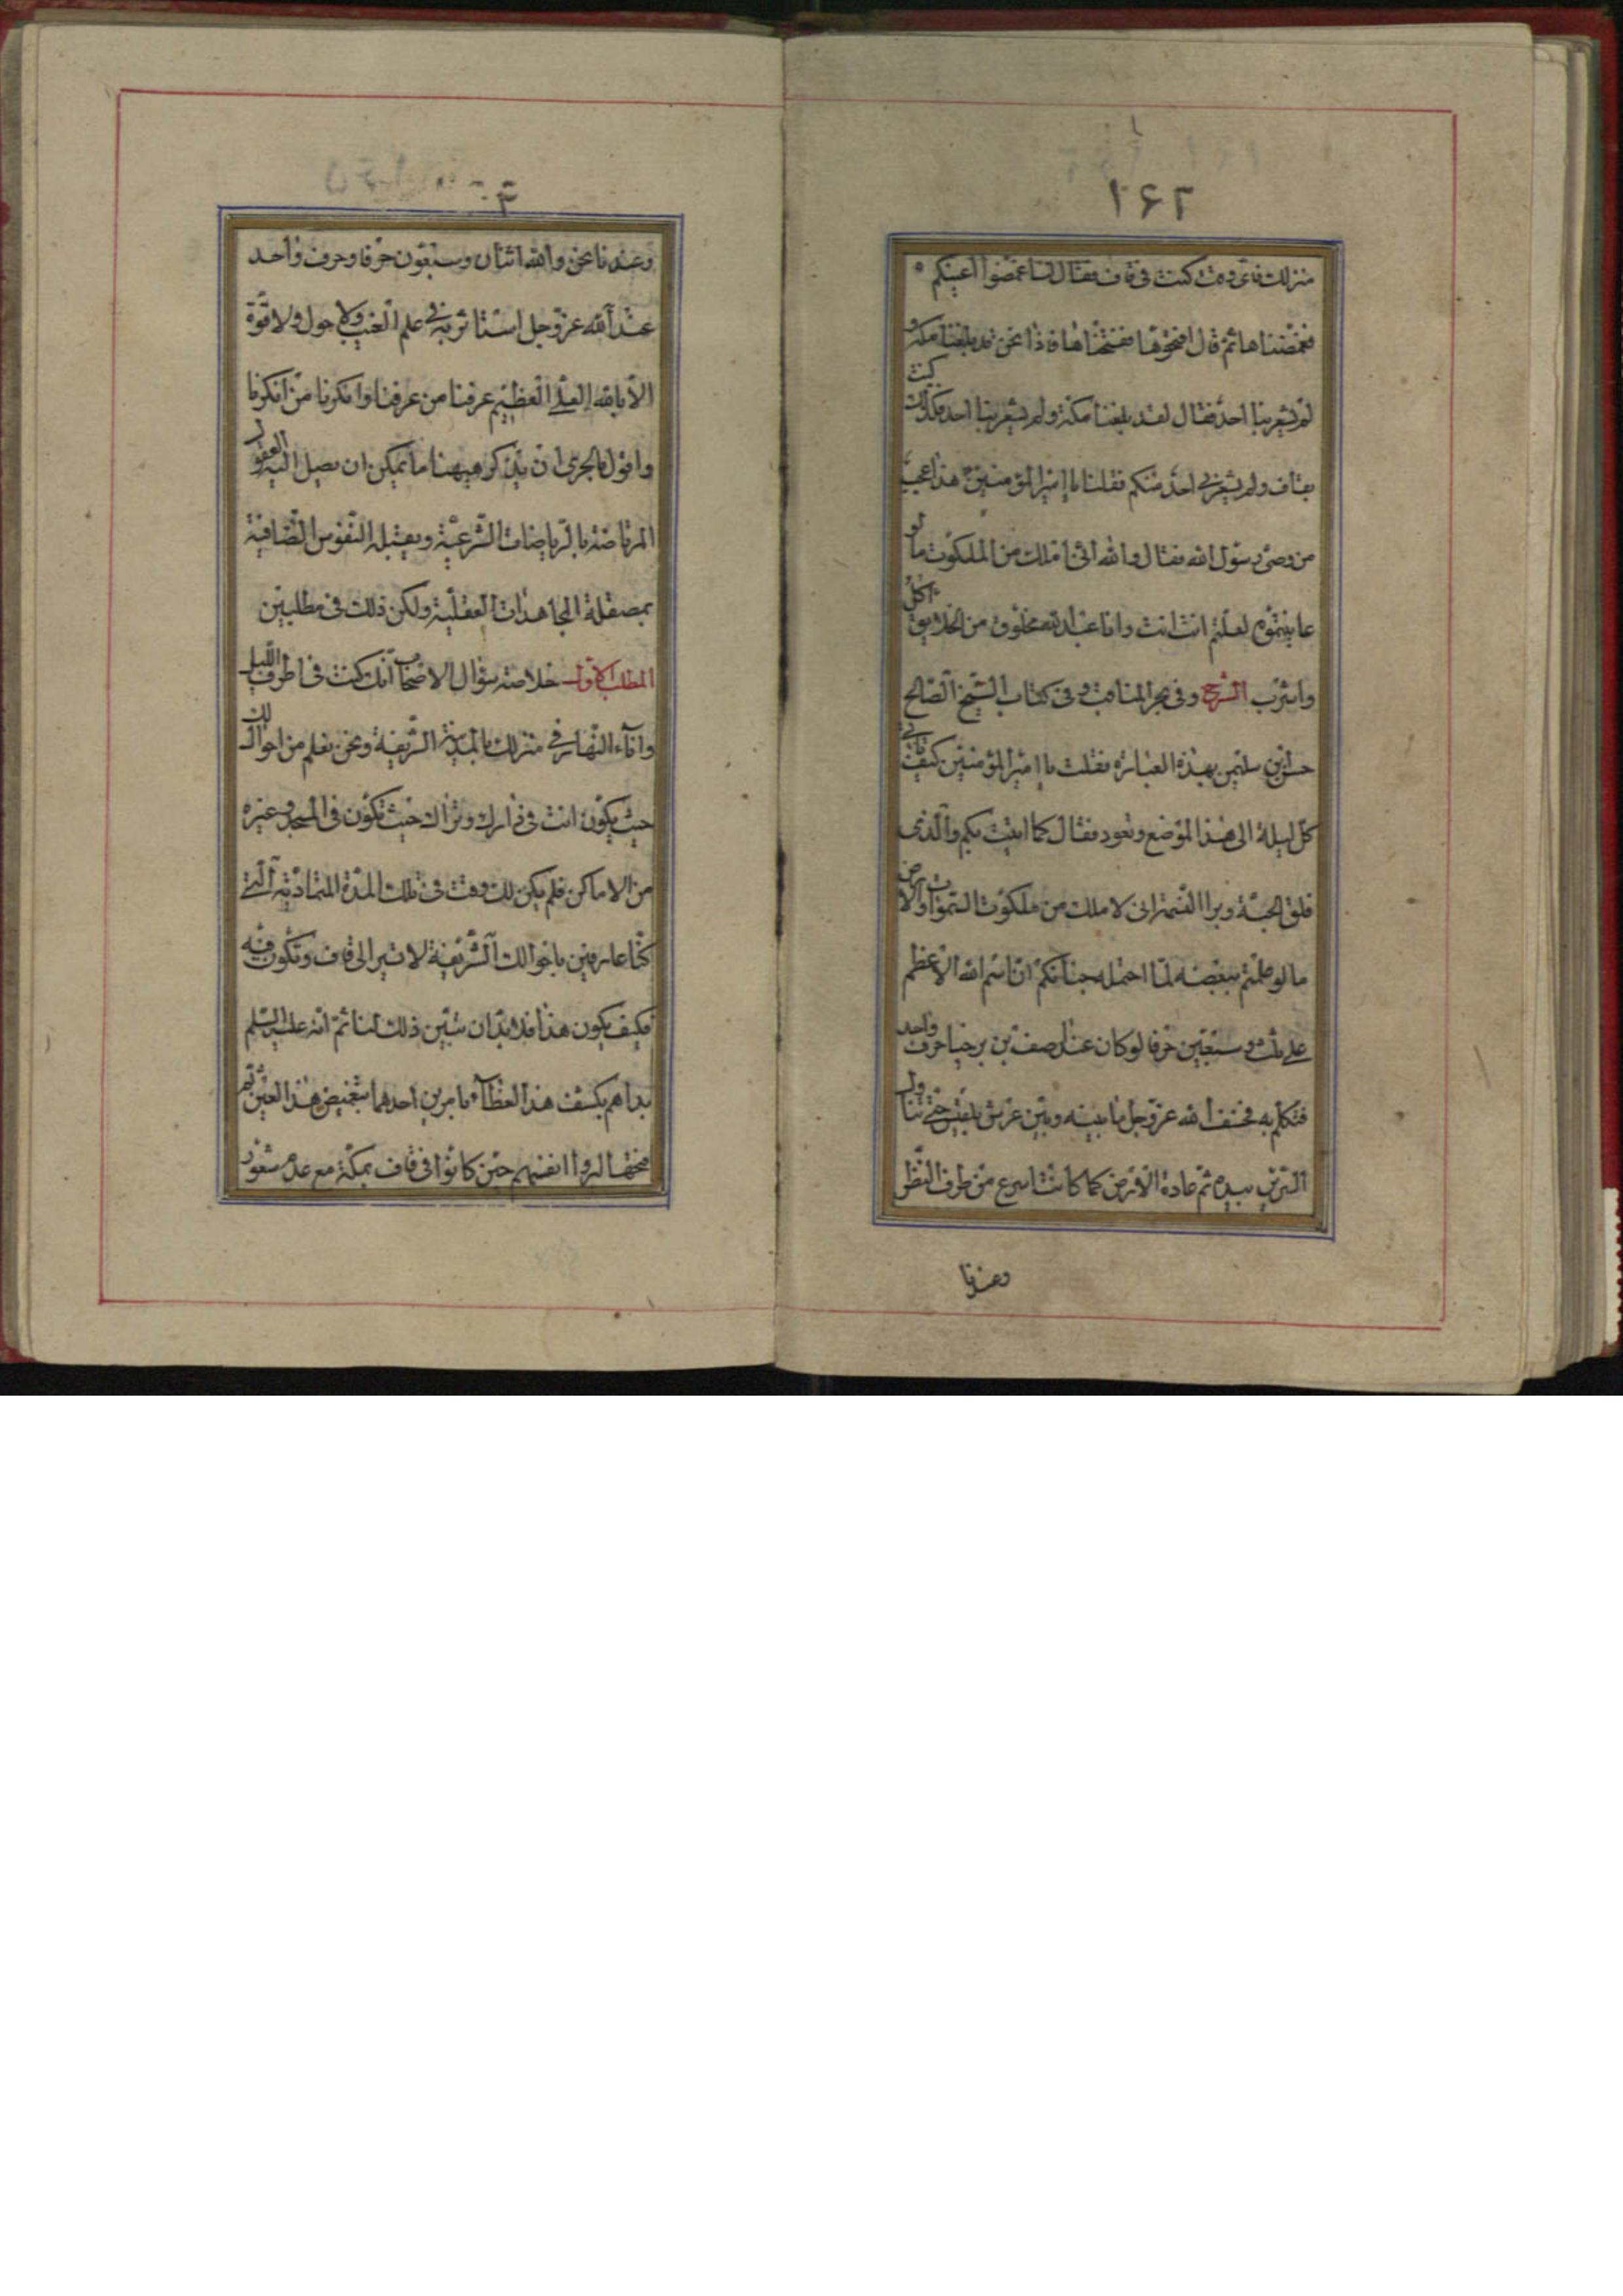 ١٦٢
منزلك فاى وقت كنت فى قاف فقال لنا غمضوا اعينكم
فغمضناها ثم قال افتحوها ففتحناها فاذا نحن قد بلغنا مكة و
لم يشعر بنا احد فقال لقد بلغنا مكة ولم يشعر بنا احد فكذلك كنت
بقاف ولم يشعر بى احد منكم فقلنا يا امير المؤمنين هذا عجب
من وصى رسول الله فقال والله انى املك من الملكوت ما لو
عاينتموه لقلتم انت انت وانا عبد الله مخلوق من الخلايق اكل
واشرب الشرح وفى بحر المناقب وفى كتاب الشيخ الصالح
حسن بن سليمن بهذه العبارة فقلت يا امير المؤمنين كيف تاتى
كل ليلة الى هذا الموضع وتعود فقال كما اتيت بكم والذى
فلق الحبة وبرا النسمة انى لاملك من ملكوت السموات والارض
ما لو علمتم ببعضه لما احتمله جنانكم ان اسم الله الاعظم
على ثلث وسبعين حرفا لو كان عند اصف بن برخيا حرف واحد
فتكلم به فخسف الله عز وجل ما بينه وبين عرش بلقيس حتى تناول
السرير بيده ثم عادت الارض كما كانت اسرع من طرف النظر
وعندنا
وعندنا نحن والله اثنان وسبعون حرفا وحرف واحد
عند الله عز وجل استاثر به فى علم الغيب ولا حول ولا قوة
الا بالله العلى العظيم عرفنا من عرفنا وانكرنا من انكرنا
واقول بالحرى ان يذكر هيهنا ما يمكن ان يصل اليه العقول
المرتاضة بالرياضات الشرعية ويقبله النفوس الصافية
بمصقلة المجاهدات العقلية ولكن ذلك فى مطلبين
المطلب الاول خلاصة سؤال الاصحاب انك كنت فى اطراف الليل
واناء النهار فى منزلك بالمدينة الشريفة ونحن نعلم من احوالك
حيث يكون انت فى دارك ونراك حيث تكون فى المسجد وغيره
من الاماكن فلم يكن لك وقت فى تلك المدة المتمادية التى
كنا عارفين باحوالك الشريفة لا تسير الى قاف وتكون فيه
فكيف يكون هذا فلا بد ان تبين ذلك لنا ثم انه عليه السلم
بداهم بكشف هذا الغطاء بامرين احدهما بتغميض هذا العين ثم
فتحها ليروا انفسهم حين كانوا فى قاف بمكة مع عدم شعور